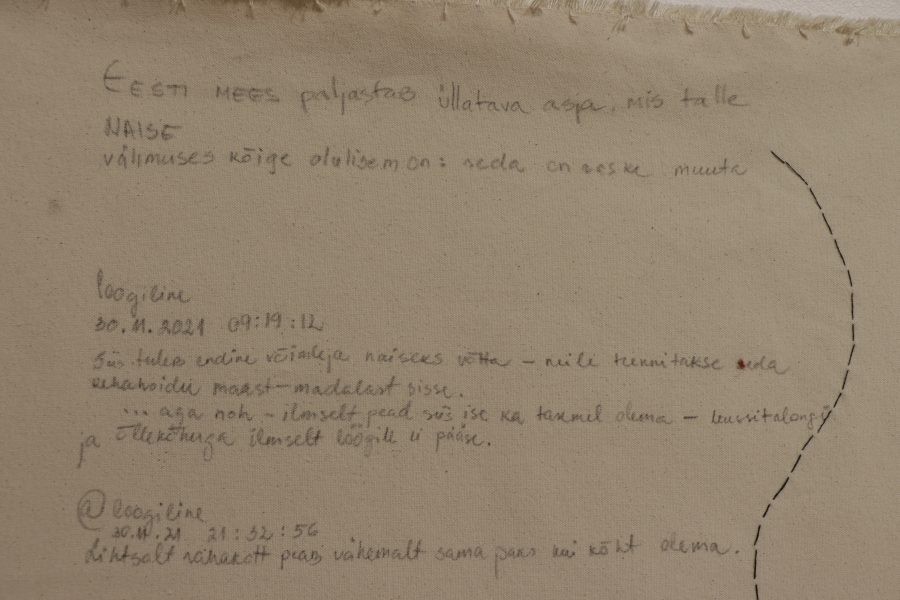 EESTI MEES paljastab üllatava asja, mis talle
NAISE
välimuses kõige olulisem on: seda on raske muuta
loogiline
30.11.2021 09:19:12
Siis tuleb endine võimleja naiseks võtta – neile tuunitakse seda
rühahoidu maast-madalast sisse.
... aga noh – ilmselt pead siis ise ka tasemel olema –
ja õllekõhuga ilmselt löögile ei pääse.
@loogiline
30.11.21 21:32:56
Lihtsalt rahakott peab vähemalt sama paks kui kõht olema.